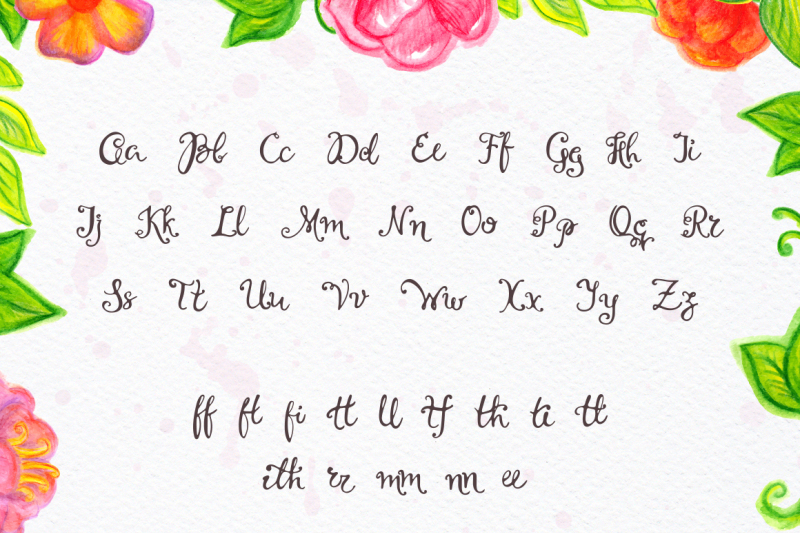 Aa Bb Cc Dd Ee Ff Gg Hh Ii
Jj Kk Ll Mm Nn Oo Pp Qq Rr
Ss Tt Uu Vv Ww Xx Yy Zz
ff ft fi tt ll tf th ti tt
ith rr mm nn ee